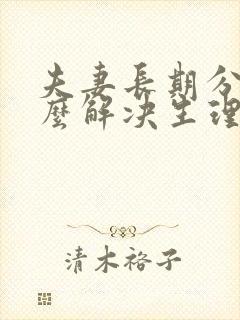 夫妻長期分
麼解决生理
清木袼子